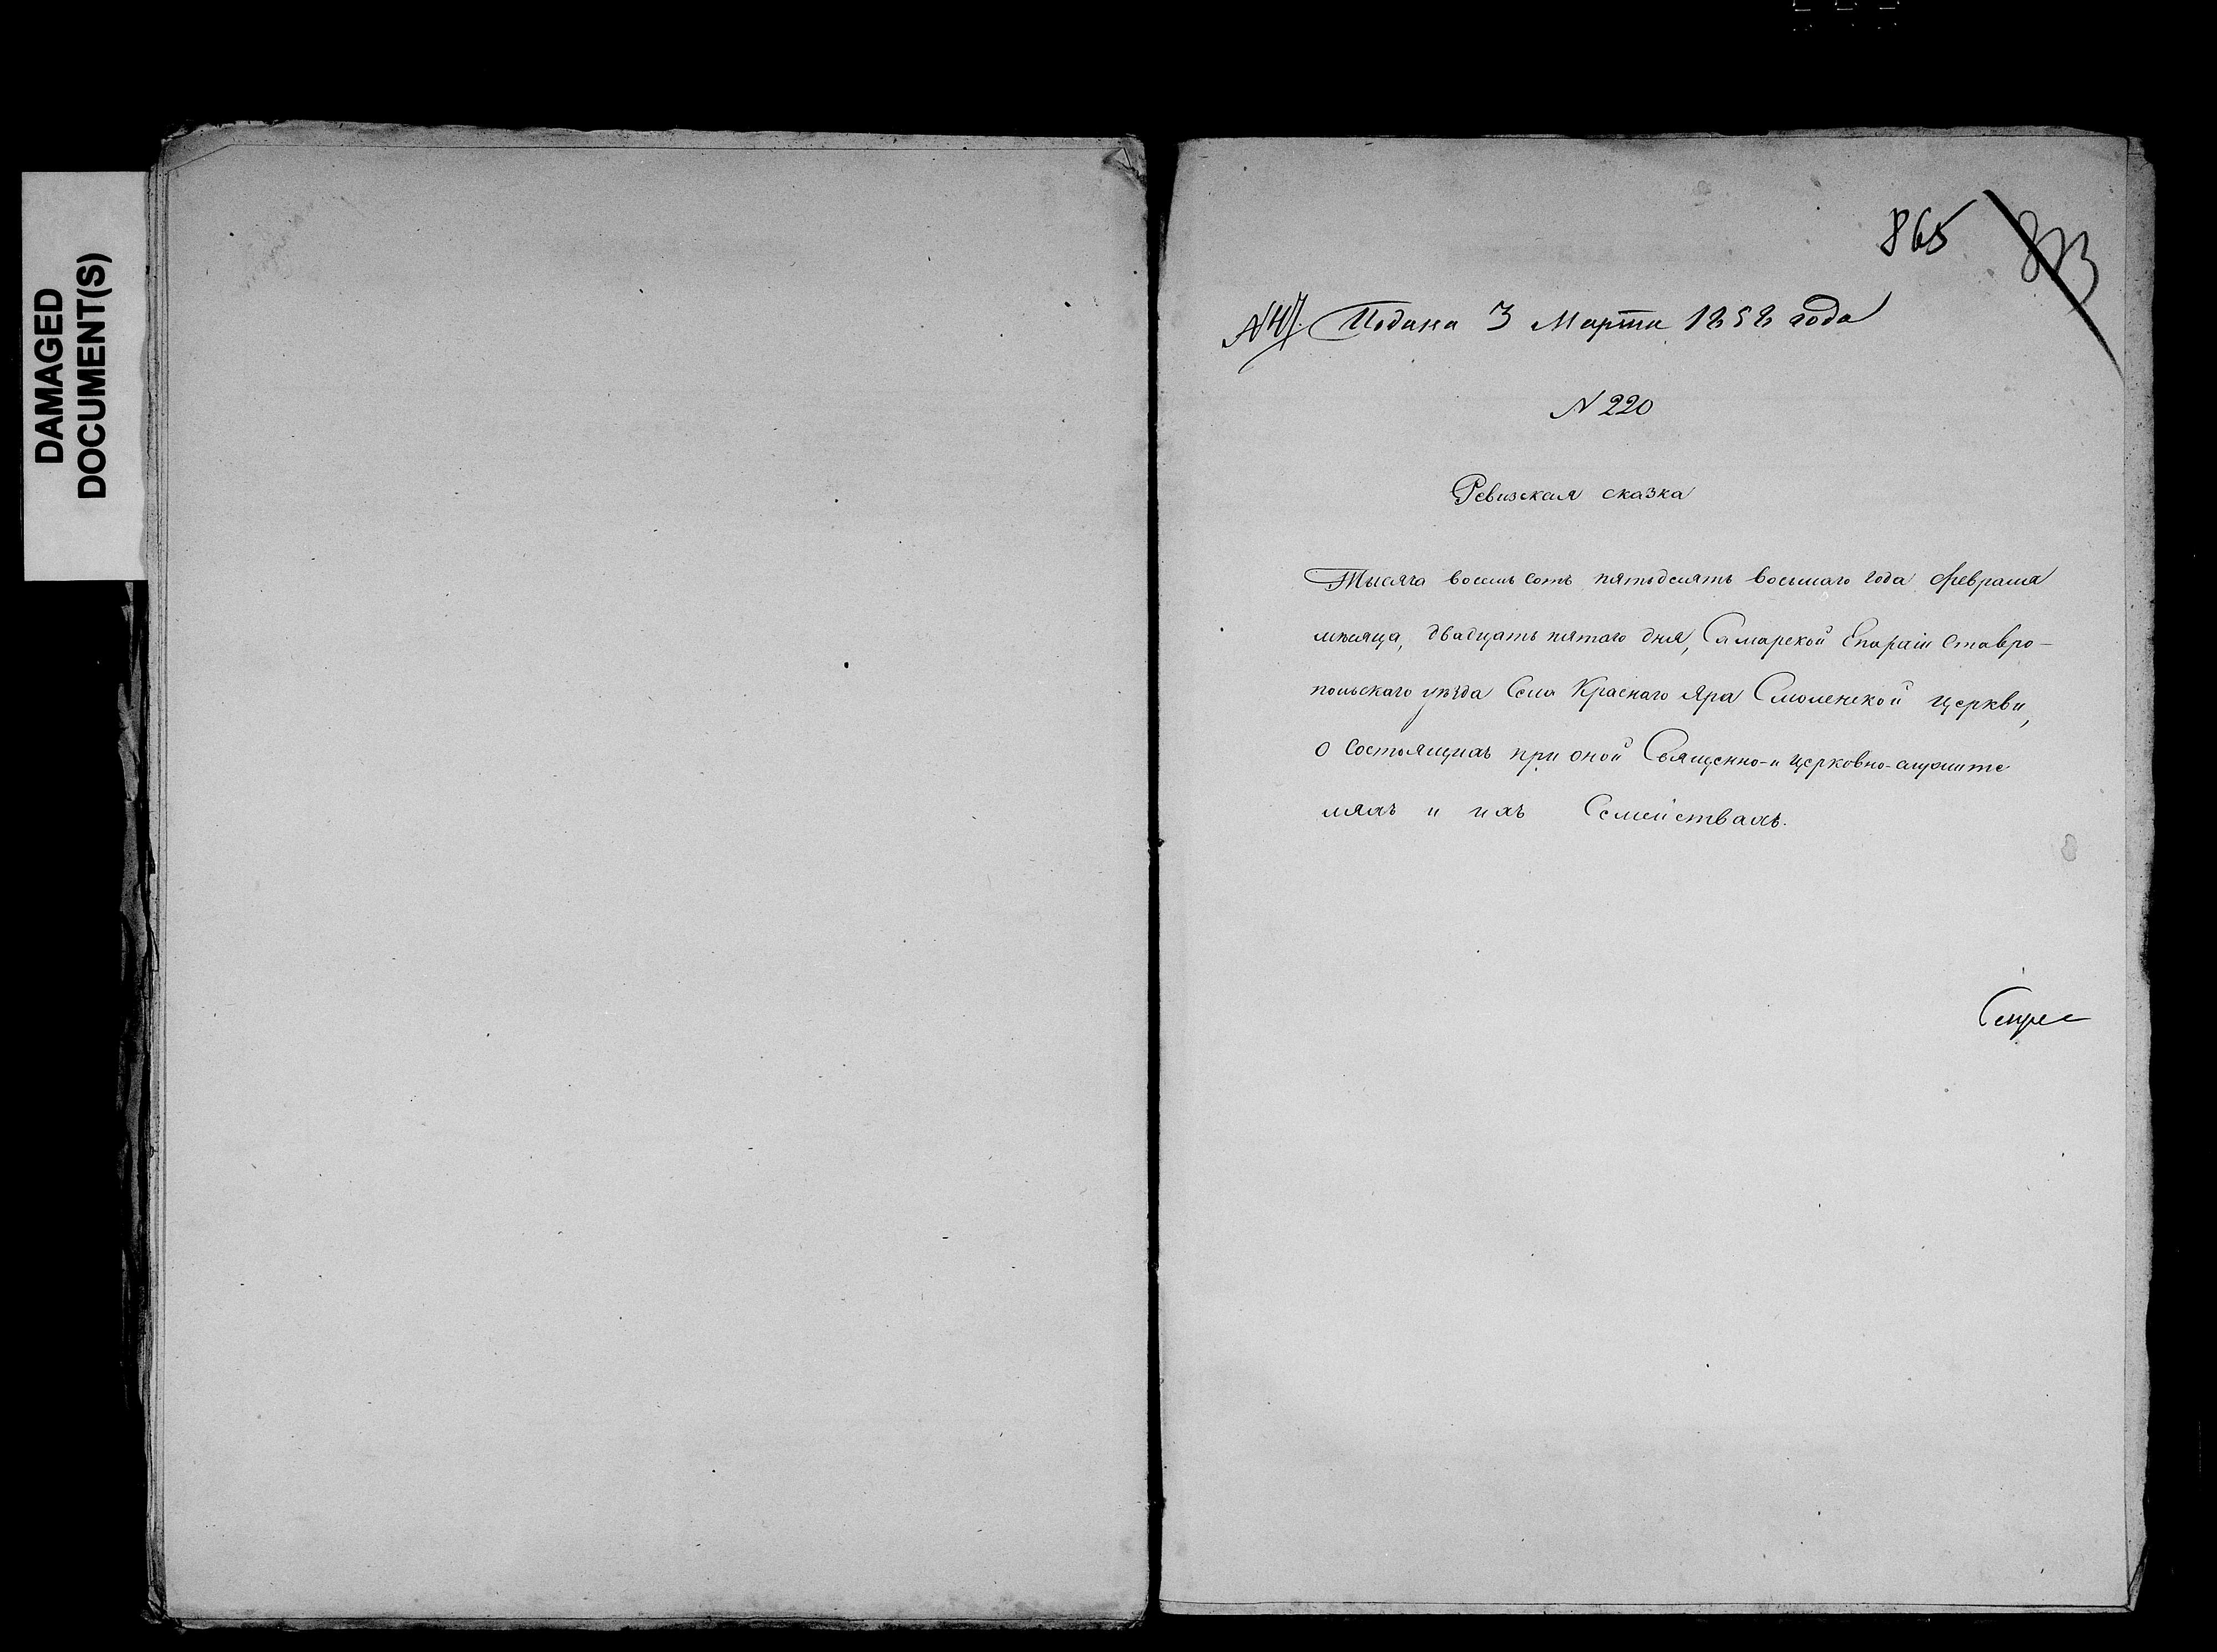 DAMAGED
DOCUMENT(S)
865 873
N47. Подана 3 Марта 1858 года
N 220
Ревизская сказка
Тысяча восемь сотъ пятьдесятъ восьмаго года февраля
мѣсяца, двадцать пятаго дня, Самарской Епархіи Ставро-
польскаго уѣзда Села Краснаго Яра Смоленской церкви,
о состоящихъ при оной Священно-и церковно-служите
ляхъ и ихъ Семействахъ.